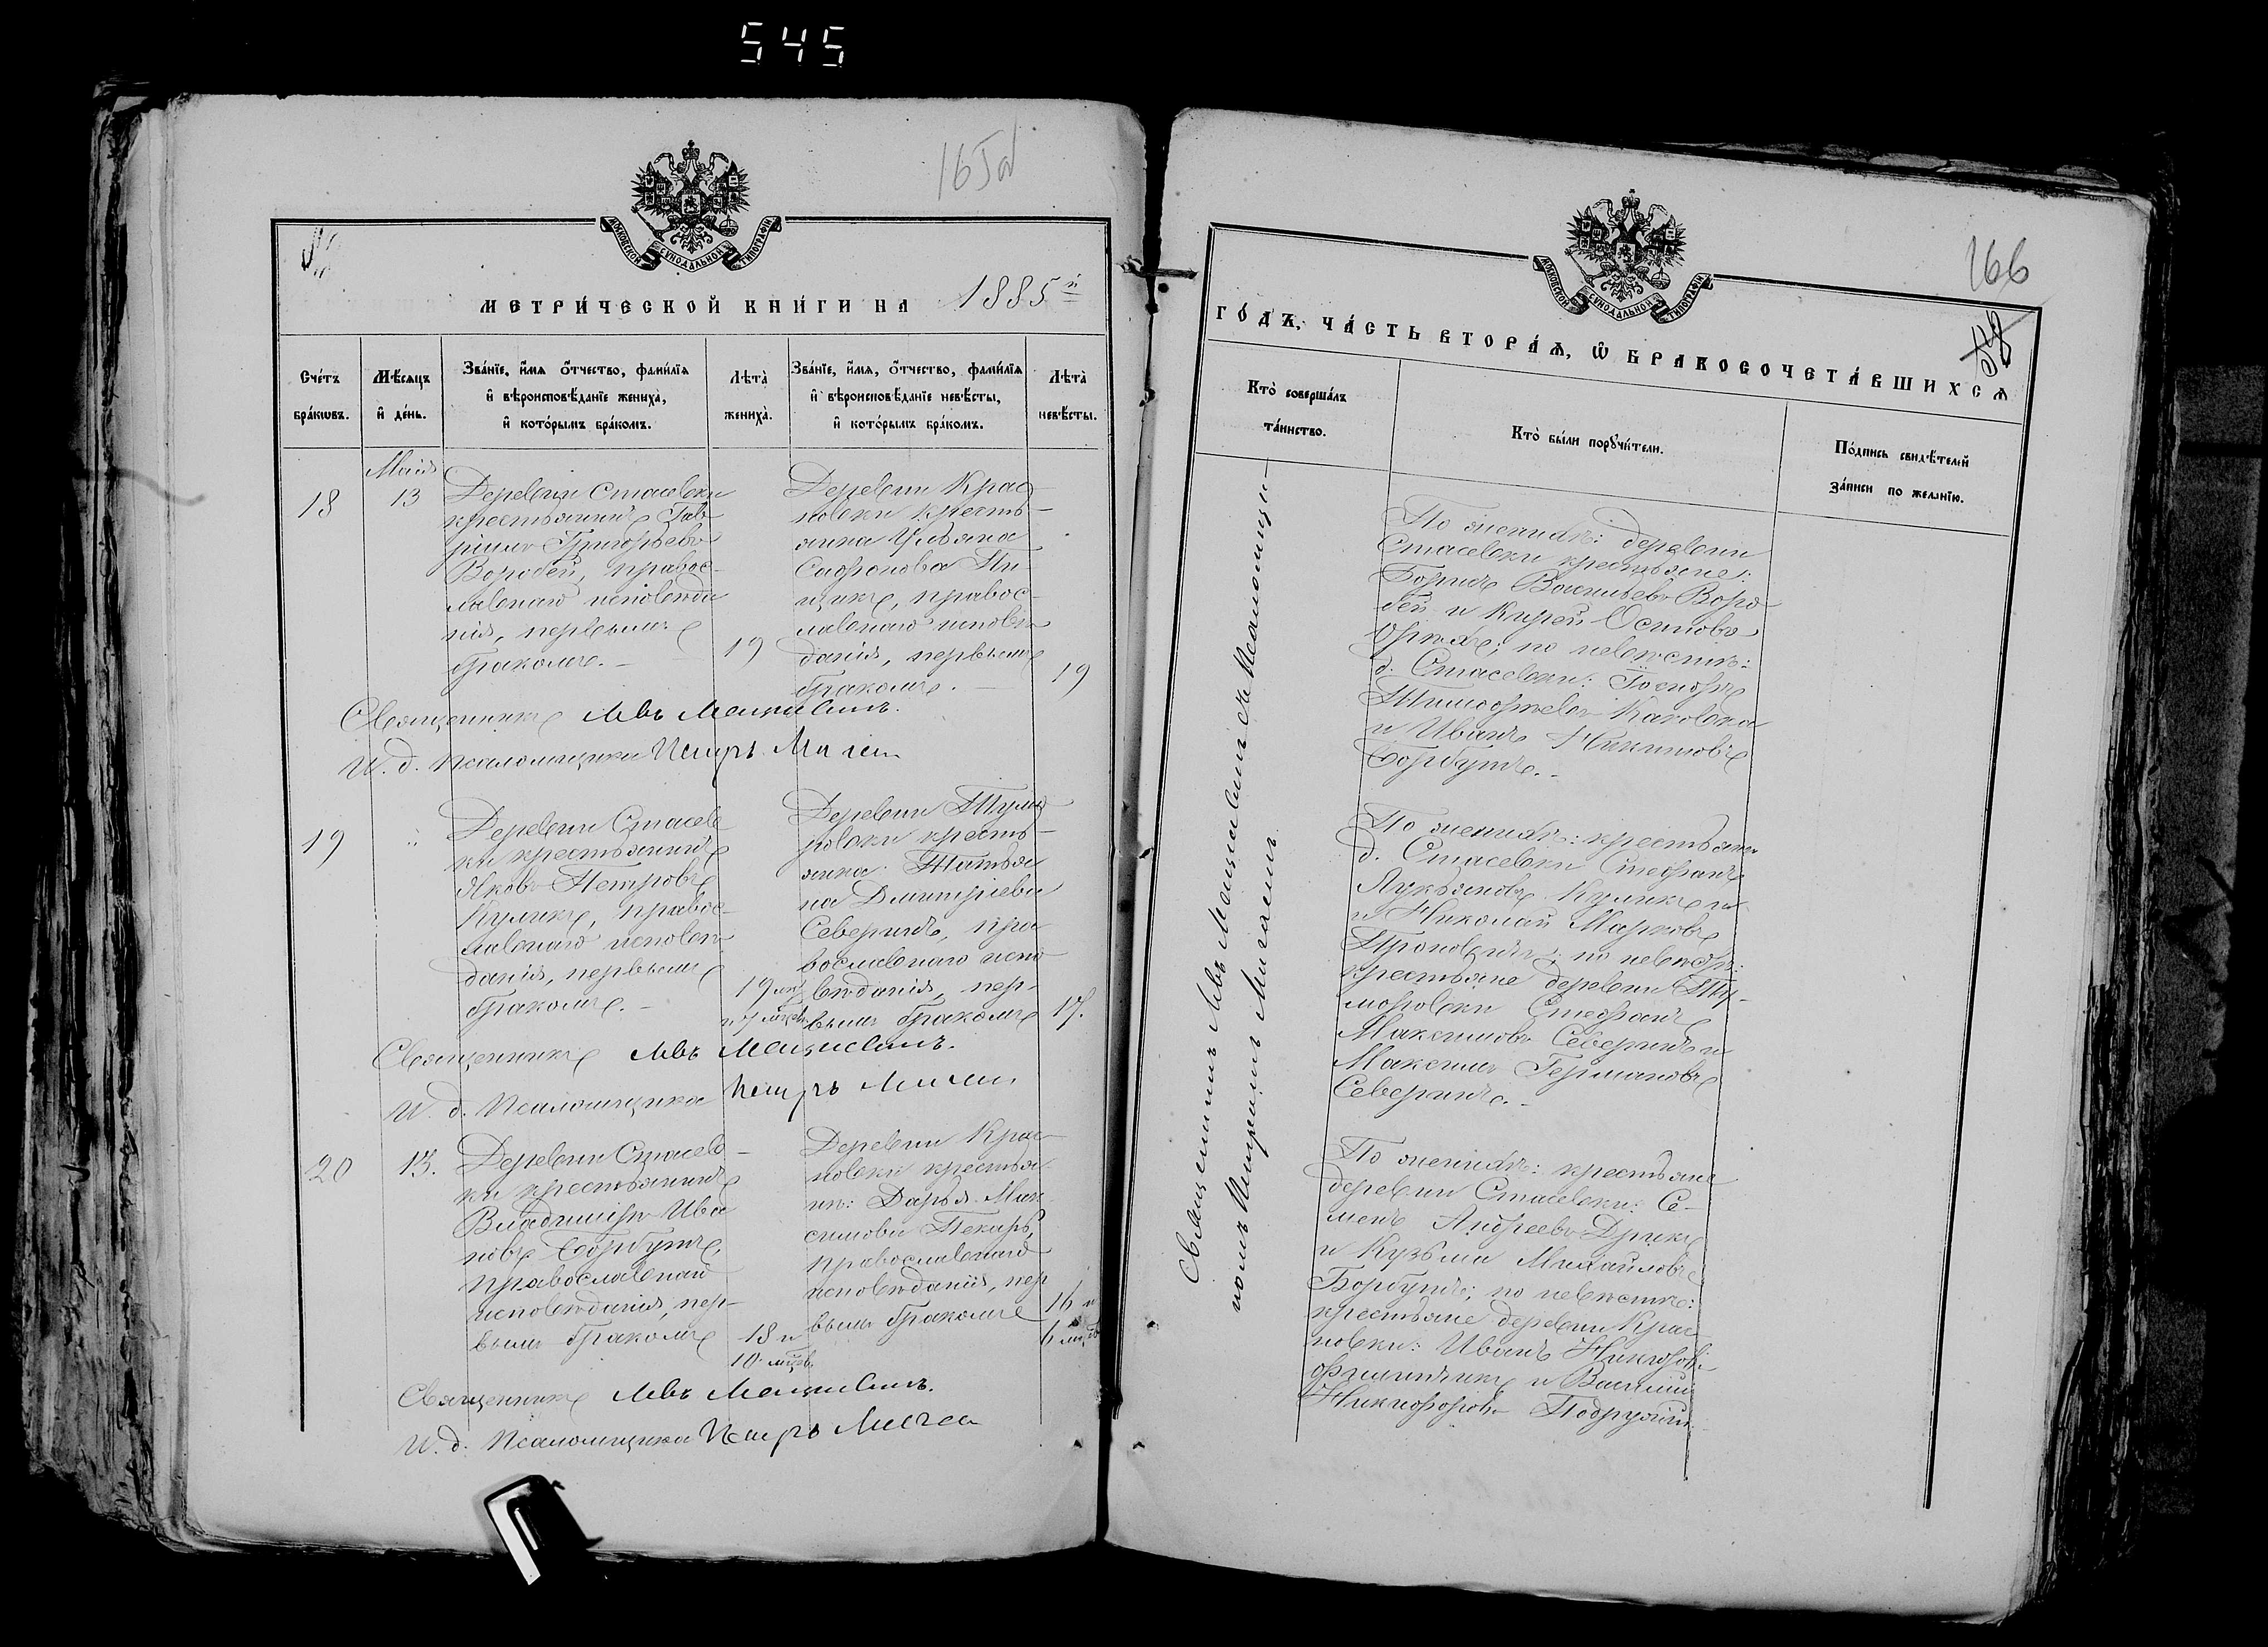 545
165об
МОСКОВСКОЙ СѴНОДАЛЬНОЙ ТИПОГРАФІИ
МЕТРИ́ЧЕСКОЙ КНИ́ГИ НА 1885й
Сче́тъ бра́ковъ.
Мѣ́сяцъ и҆ де́нь.
Зва́нїе, и҆́мя ѻ҆́тчество, фами́лїя и҆ вѣроисповѣ́данїе жениха̀, и҆ кото́рымъ бра́комъ.
Лѣта̀ жениха̀.
Зва́нїе, и҆́мя, ѻ҆́тчество, фами́лїя и҆ вѣроисповѣ́данїе невѣ́сты, и҆ кото́рымъ бра́комъ.
Лѣта̀ невѣ́сты.
18
Маія
13
Деревни Стасевки
крестьянинъ Гав-
риилъ Григорьевъ
Воробей, правос-
лавнаго исповѣда
нія, первымъ
бракомъ.
19
Деревни Крас-
новки кресть-
янка Ульяна
Сафонова Ти-
щикъ, правос-
лавнаго исповѣ
данія, первымъ
бракомъ.
19
Священникъ Левъ Мацкевичъ.
И. д. псаломщика Петръ
19
"
Деревни Стасев
ки крестьянинъ
Яковъ Петровъ
Куликъ, правос-
лавнаго исповѣ
данія, первымъ
бракомъ.
19 лѣтъ
и 7 мцевъ
Деревни Тумо
ровки кресть-
янка Татья
на Димитріева
Северинъ, пра
вославнаго испо
вѣданія, пер-
вымъ бракомъ
17.
Священникъ Левъ Мацкевичъ.
И. д. псаломщика Петръ
20
13.
Деревни Стасев-
ки крестьянинъ
Владиміръ Ива
новъ Борбутъ,
православнаго
исповѣданія, пер-
вымъ бракомъ
18 и
10 мцевъ
Деревни Крас-
новки крестья
нк: Дарья Мак
симова Пекарь,
православнаго
исповѣданія, пер
вымъ бракомъ
16 и
6 мцевъ
Священникъ Левъ Мацкевичъ.
И. д. псаломщика Петръ
166
МОСКОВСКОЙ СѴНОДАЛЬНОЙ ТИПОГРАФІИ
ГО́ДЪ, ЧА́СТЬ ВТОРА́Я, Ѡ҆ БРАКОСОЧЕТА́ВШИХСЯ
Кто̀ соверша́лъ та́инство.
Кто̀ бы́ли порꙋчи́тели.
По́дпись свидѣ́телей за́писи по жела́нїю.
Священникъ Левъ Мацкевичъ съ псаломщи-
комъ Петромъ
По женихѣ: деревни
Стасевки крестьяне:
Борисъ Васильевъ Воро
бей и Кирей Осиповъ
по невѣстѣ:
д. Стасевки:
Тимофѣевъ
и Иванъ Никитовъ
Борбутъ.
По женихѣ: крестьяне
д. Стасевки Стефанъ
Лукьяновъ Куликъ и
и Николай Марковъ
по невѣстѣ:
крестьяне деревни Ту-
моровки Стефанъ
Максимовъ Северинъ и
Максимъ Германовъ
Северинъ.
По женихѣ: крестьяне
деревни Стасевки: Се-
менъ Андреевъ
и Кузьма Михайловъ
Борбутъ; по невѣстѣ:
крестьяне деревни Крас
новки: Иванъ
и Василій
Никифоровъ